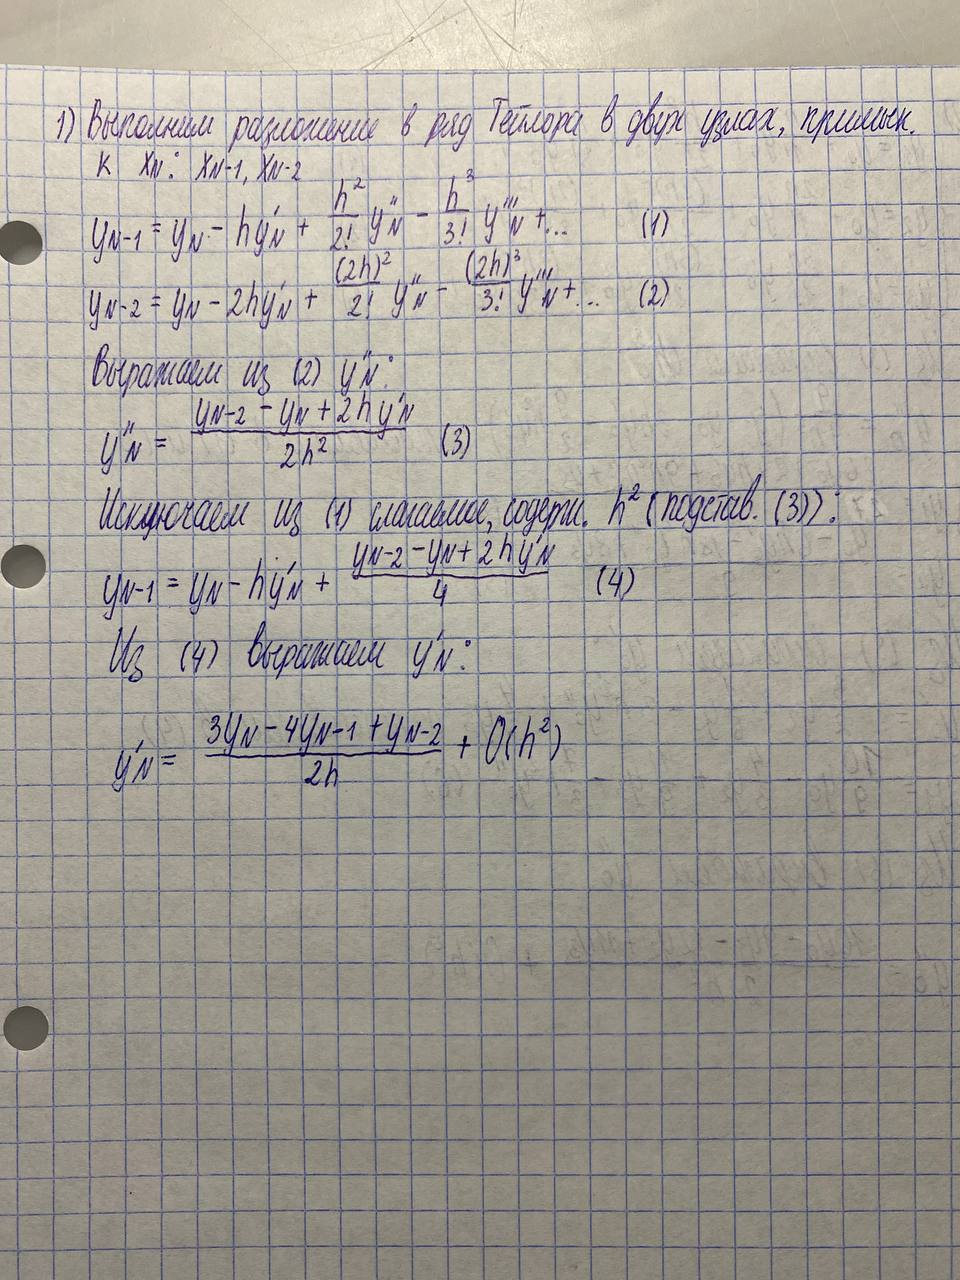 1) Выполним разложение в ряд Тейлора в двух узлах, примык.
к xN: xN-1, xN-2
yN-1 = yN - hy'N + h²/2! y''N - h³/3! y'''N + ... (1)
yN-2 = yN - 2hy'N + (2h)²/2! y''N - (2h)³/3! y'''N + ... (2)
Выражаем из (2) y''N:
y''N = (yN-2 - yN + 2hy'N)/2h² (3)
Исключаем из (1) слагаемое, содерж. h² (подстав. (3)):
yN-1 = yN - hy'N + (yN-2 - yN + 2hy'N)/4 (4)
Из (4) выражаем y'N:
y'N = (3yN - 4yN-1 + yN-2)/2h + O(h²)